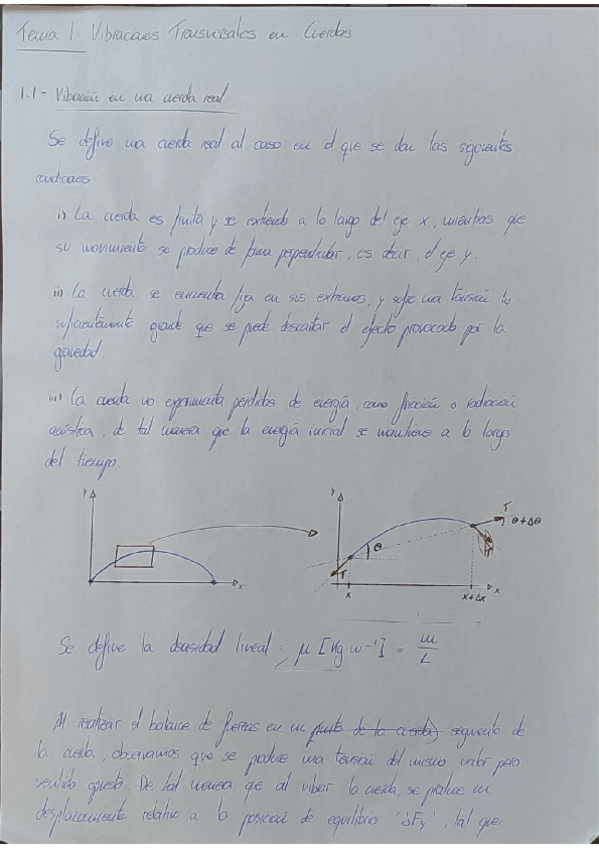 Tema 1 Vibraciones Transversales en Cuerdas
1.1- Vibración en una cuerda real.
Se define una cuerda real al caso en el que se dan las siguientes
condiciones
i) La cuerda es finita y se extiende a lo largo del eje x, mientras que
su movimiento se produce de forma perpendicular, es decir, el eje y.
ii) La cuerda se encuentra fija en sus extremos, y sufre una tensión lo
suficientemente grande que se puede descartar el efecto provocado por la
gravedad.
iii) La cuerda no experimenta pérdidas de energía, como fricción o radiación
acústica, de tal manera que la energía inicial se mantiene a lo largo
del tiempo.
y
x
y
T
θ+Δθ
θ
T
x
x+Δx
x
Se define la densidad lineal: μ [Kg·m⁻¹] = m/L
Al realizar el balance de fuerzas en un punto de la cuerda) segmento de
la cuerda, observamos que se produce una tensión del mismo valor pero
sentido opuesto. De tal manera que al vibrar la cuerda, se produce un
desplazamiento relativo a la posición de equilibrio 'δFy', tal que